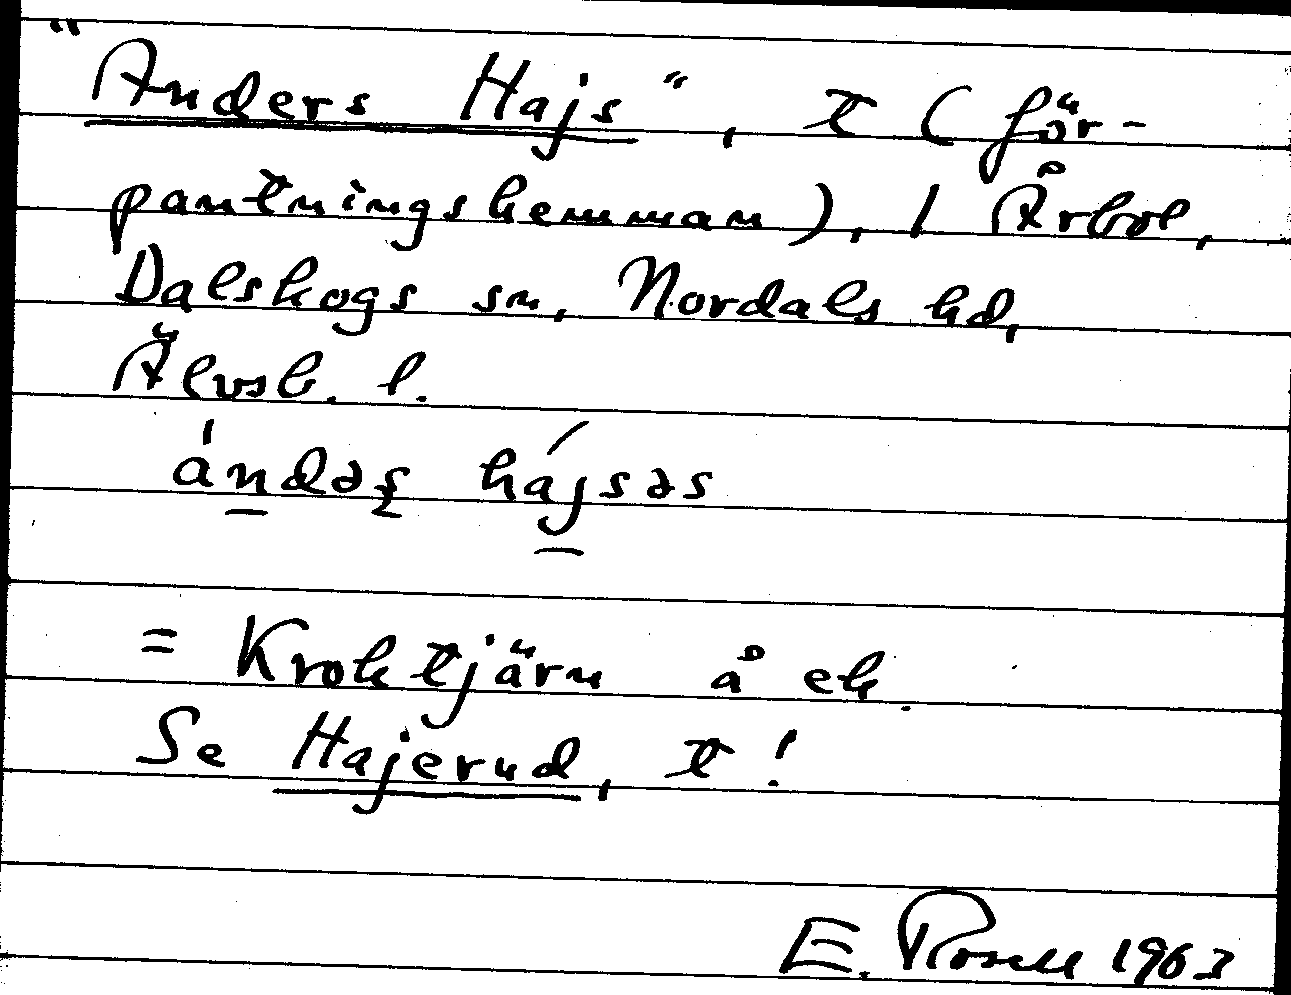 "Anders Hajs", t (för-
pantningshemman), / Årbol,
Dalskogs sn, Nordals hd,
Älvsb. l.
ándəs hájsəs
= Kroktjärn å ek.
Se Hajerud, t!
E. Rosell 1963